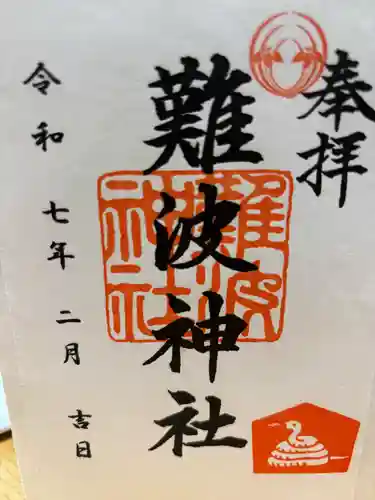 奉拝
難波神社
難波神社
令和七年二月吉日